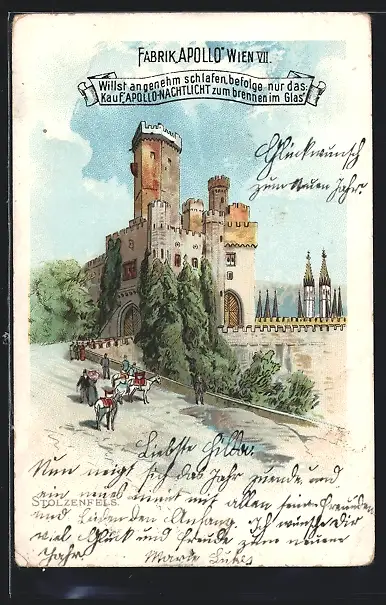 FABRIK „APOLLO" WIEN VII.
Willst angenehm schlafen, befolge nur das:
Kauf „APOLLO-NACHTLICHT zum brennen im Glas"
Glückwunsch
zum neuen Jahr.
Liebste Hilda.
Nun neigt sich das Jahr zuende und
ein neues nimmt mit allen seinen Freunden
STOLZENFELS.
und Leiden den Anfang. Ich wünsche dir
viel Glück und Freude zum neuen
Jahr